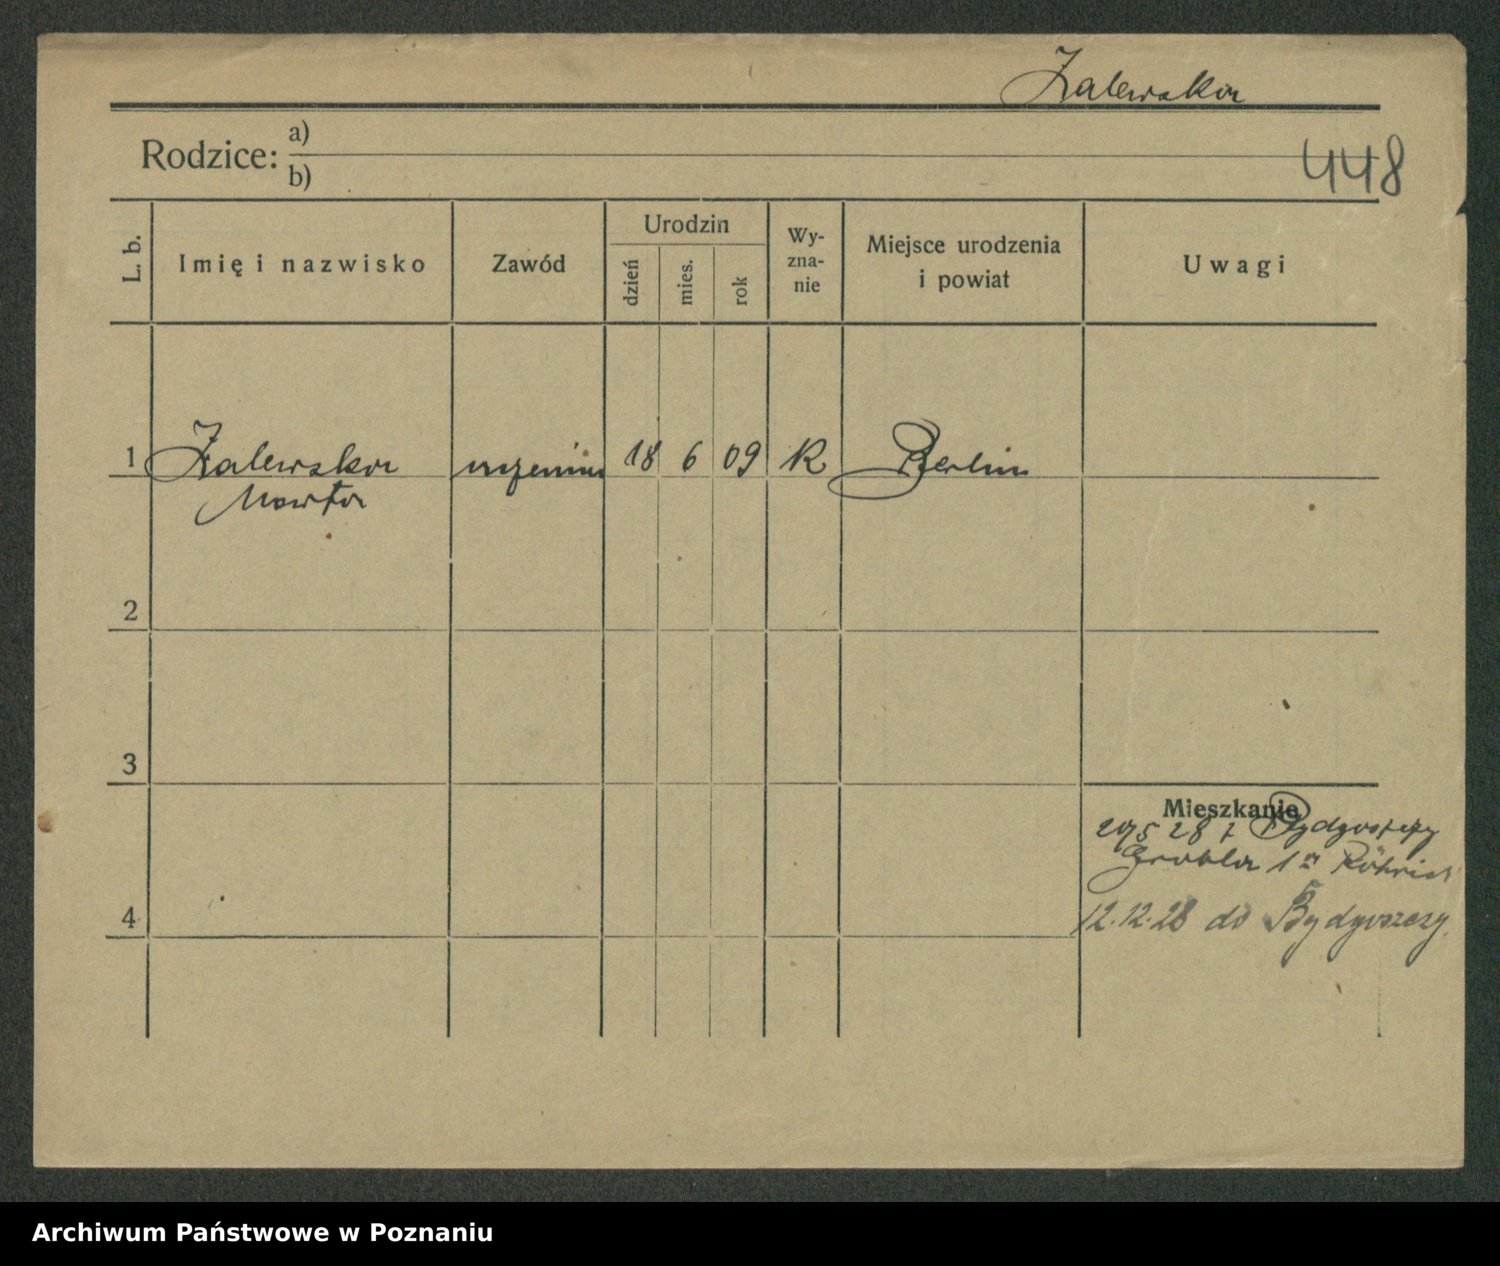 Zalewska
Rodzice: a)
b)
448
L. b.
Imię i nazwisko
Zawód
Urodzin
dzień
mies.
rok
Wy-
zna-
nie
Miejsce urodzenia
i powiat
Uwagi
1 Zalewska uczenica 18 6 09 R Berlin
Marta
2
3
Mieszkanie
28 z Bydgoszczy
Grobla 1
4
12.12.28 do Bydgoszczy
Archiwum Państwowe w Poznaniu